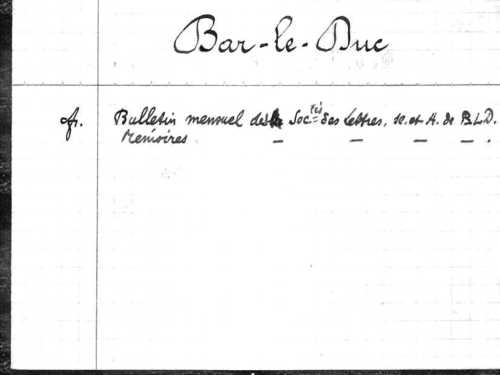 Bar-le-Duc
cf. Bulletin mensuel de la Soc.té des Lettres, Sc. et A. de B.L.D.
Mémoires — — — — .